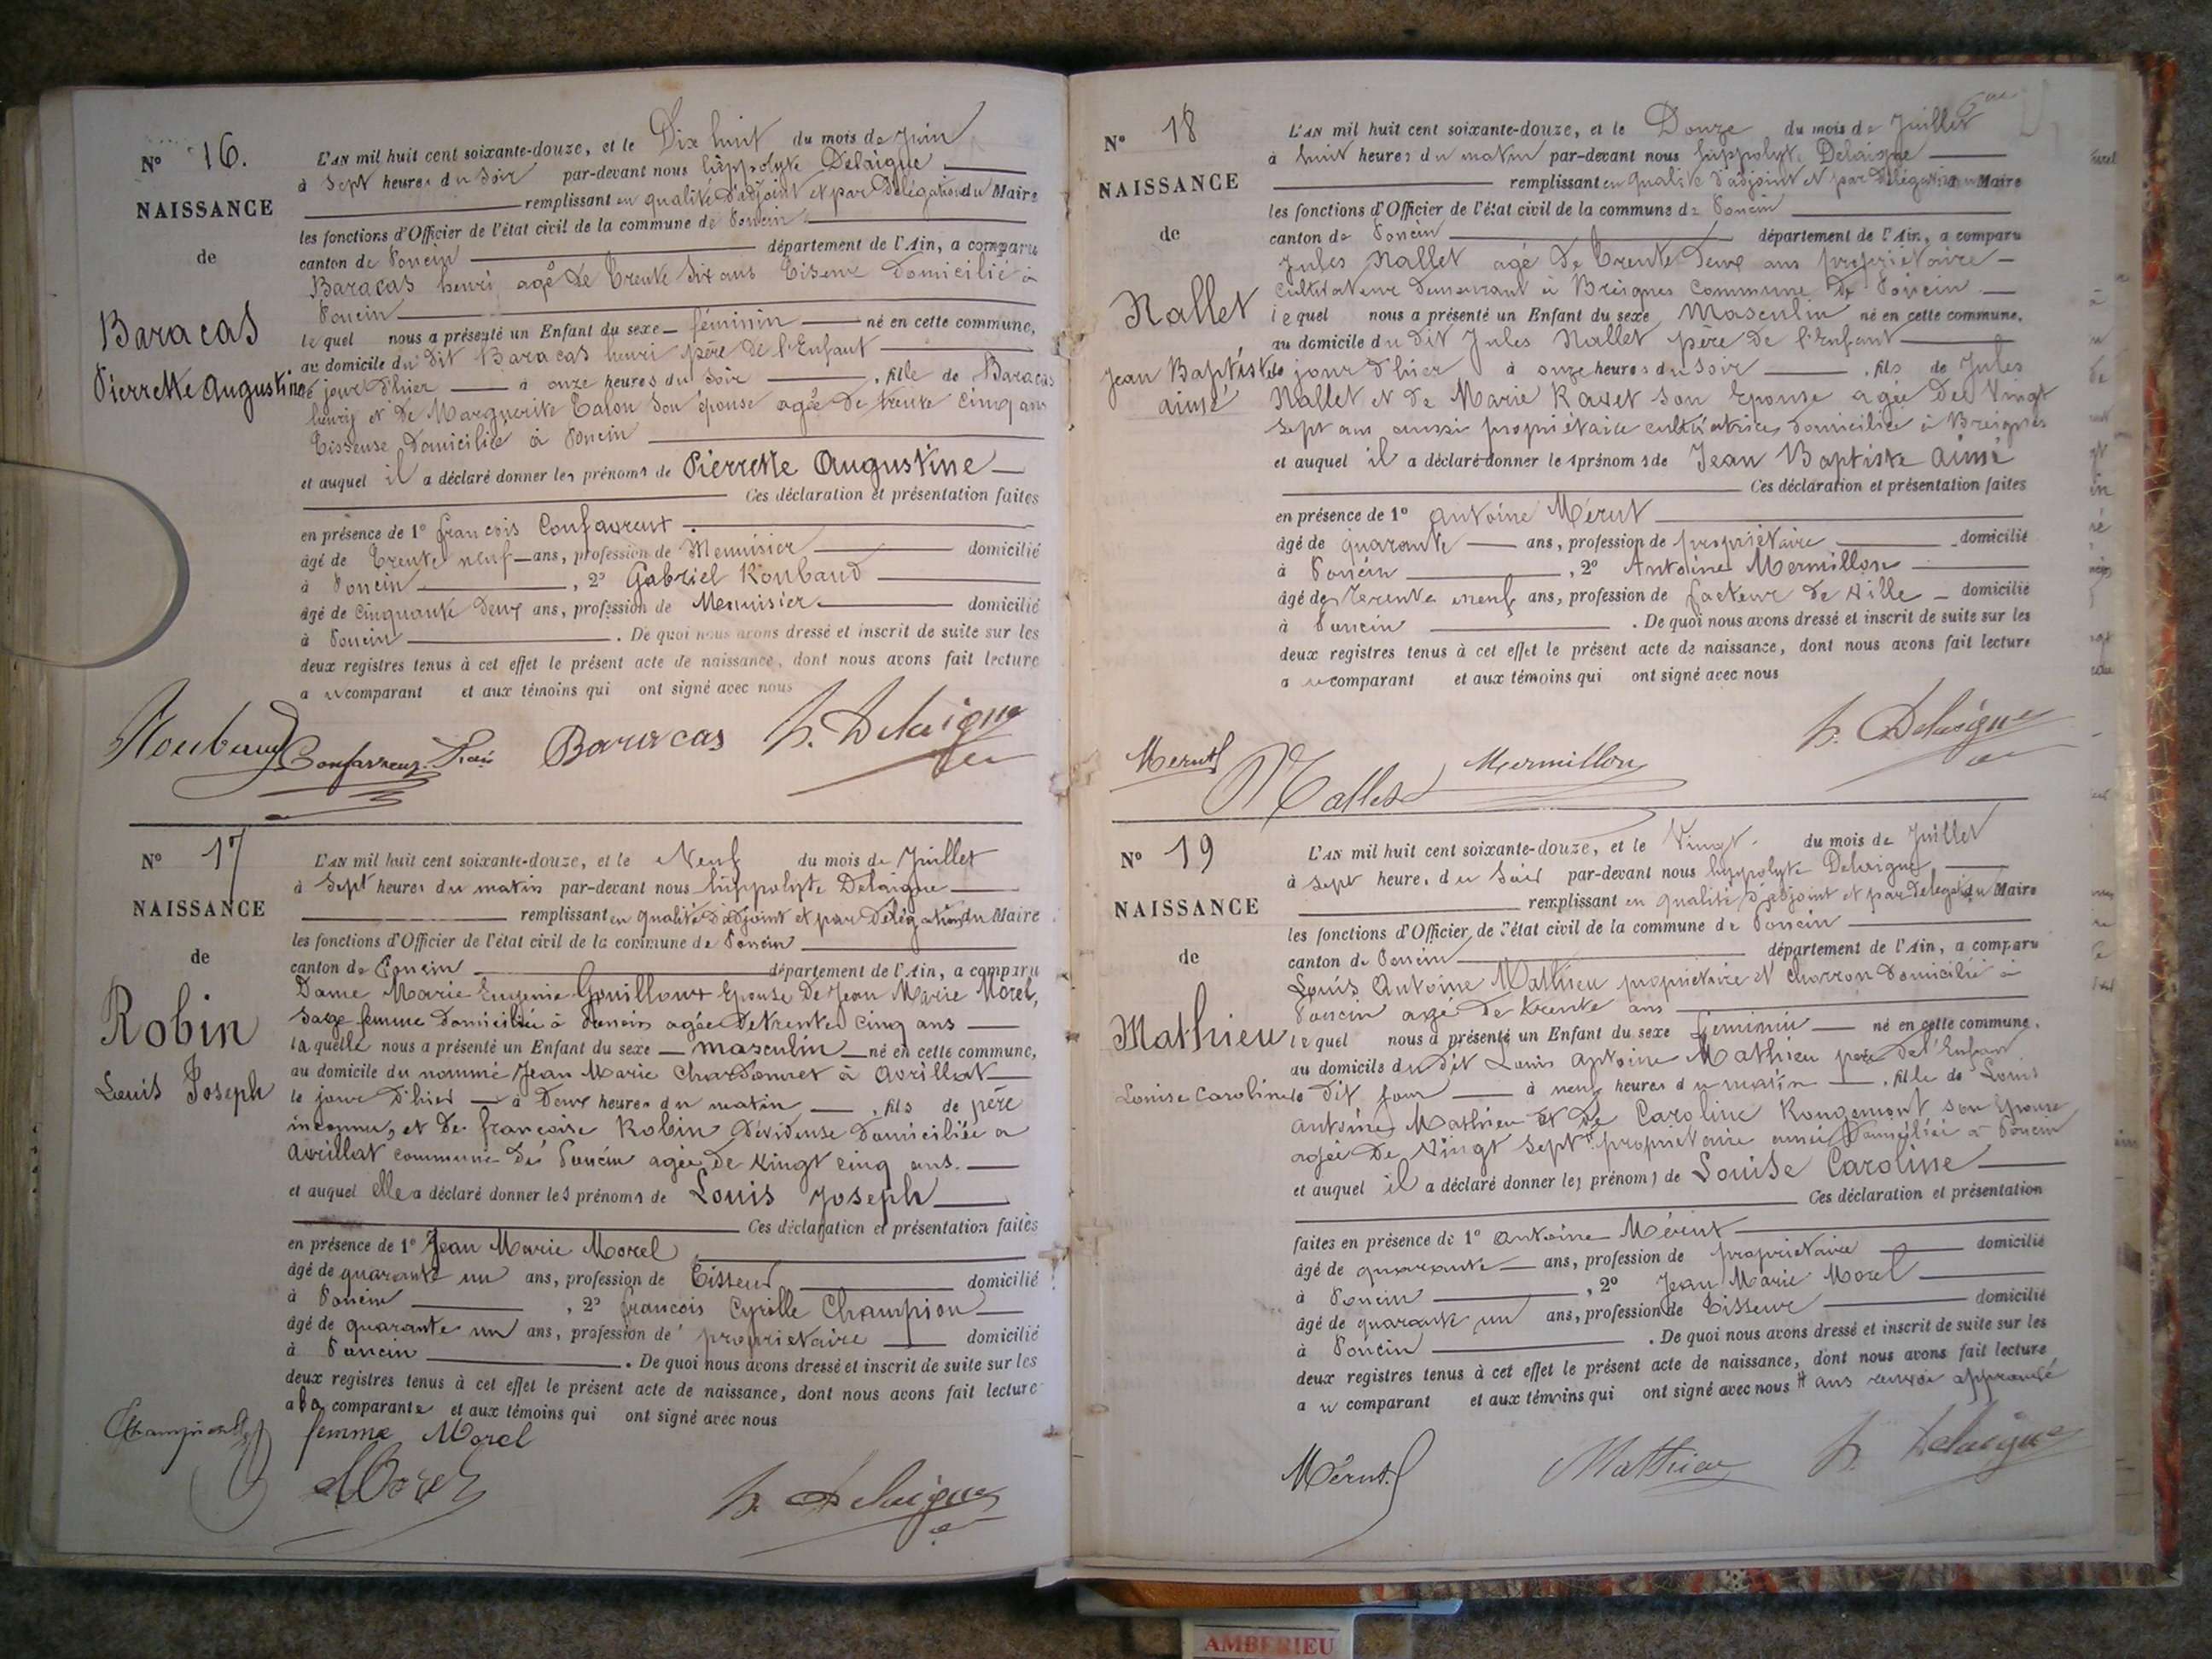 N° 16.
NAISSANCE
de
Baracas
Pierrette Augustine
L'AN mil huit cent soixante-douze, et le Dix huit du mois de Juin
à Sept heures du Soir par-devant nous hippolyte Delaigue
remplissant en qualité d'adjoint et par Délégation du Maire
les fonctions d'Officier de l'état civil de la commune de Poncin
canton de Poncin département de l'Ain, a comparu
Baracas henri agé de trente six ans Tisseur domicilié à
Poncin
lequel nous a présenté un Enfant du sexe féminin né en cette commune,
au domicile du dit Baracas henri père de l'Enfant
le jour d'hier à onze heures du Soir , fille de Baracas
henry et de Marguerite Talon Son épouse agée de trente cinq ans
Tisseuse domiciliée à Poncin
et auquel il a déclaré donner les prénoms de Pierrette Augustine
Ces déclaration et présentation faites
en présence de 1° françois Confavreux
âgé de Trente neuf ans, profession de Menuisier domicilié
à Poncin , 2° Gabriel Roubaud
âgé de Cinquante deux ans, profession de Menuisier domicilié
à Poncin . De quoi nous avons dressé et inscrit de suite sur les
deux registres tenus à cet effet le présent acte de naissance, dont nous avons fait lecture
au comparant et aux témoins qui ont signé avec nous
Roubaud Confavreux Baracas h. Delaigue
N° 17
NAISSANCE
de
Robin
Louis Joseph
L'AN mil huit cent soixante-douze, et le Neuf du mois de Juillet
à Sept heures du matin par-devant nous hippolyte Delaigue
remplissant en qualité d'adjoint et par Délégation du Maire
les fonctions d'Officier de l'état civil de la commune de Poncin
canton de Poncin département de l'Ain, a comparu
Dame Marie Eugenie Gouilloux Epouse De Jean Marie Morel,
Sage femme domiciliée à Poncin agée de trente cinq ans
laquelle nous a présenté un Enfant du sexe masculin né en cette commune,
au domicile du nommé Jean Marie Chardonnet à Avrillat
le jour d'hier à Deux heures du matin , fils de père
inconnu, et de françoise Robin Dévideuse Domiciliée a
Avrillat commune de Poncin agée de vingt cinq ans.
et auquel elle a déclaré donner les prénoms de Louis Joseph
Ces déclaration et présentation faites
en présence de 1° Jean Marie Morel
âgé de quarante un ans, profession de Tisseur domicilié
à Poncin , 2° françois Cyrille Champion
âgé de quarante un ans, profession de propriétaire domicilié
à Poncin . De quoi nous avons dressé et inscrit de suite sur les
deux registres tenus à cet effet le présent acte de naissance, dont nous avons fait lecture
a la comparante et aux témoins qui ont signé avec nous
Champion femme Morel
Morel h. Delaigue
N° 18
NAISSANCE
de
Nallet
Jean Baptiste
aimé
L'AN mil huit cent soixante-douze, et le Douze du mois de Juillet
à huit heures du matin par-devant nous hippolyte Delaigue
remplissant en qualité d'adjoint et par Délégation du Maire
les fonctions d'Officier de l'état civil de la commune de Poncin
canton de Poncin département de l'Ain, a comparu
Jules Nallet agé de trente deux ans propriétaire
Cultivateur demeurant à Breignes Commune de Poncin
lequel nous a présenté un Enfant du sexe Masculin né en cette commune,
au domicile du dit Jules Nallet père de l'Enfant
le jour d'hier à onze heures du Soir , fils de Jules
Nallet et de Marie Ravet son Epouse agée de Vingt
Sept ans aussi propriétaire cultivatrice domiciliée à Breignes
et auquel il a déclaré donner les prénoms de Jean Baptiste Aimé
Ces déclaration et présentation faites
en présence de 1° Antoine Mérut
âgé de quarante ans, profession de propriétaire domicilié
à Poncin , 2° Antoine Mermillon
âgé de Trente neuf ans, profession de facteur de Ville domicilié
à Poncin . De quoi nous avons dressé et inscrit de suite sur les
deux registres tenus à cet effet le présent acte de naissance, dont nous avons fait lecture
au comparant et aux témoins qui ont signé avec nous
Merut Nallet Mermillon h. Delaigue
N° 19
NAISSANCE
de
Mathieu
Louise Caroline
L'AN mil huit cent soixante-douze, et le Vingt du mois de Juillet
à sept heures du Soir par-devant nous hippolyte Delaigue
remplissant en qualité d'adjoint et par Délégation du Maire
les fonctions d'Officier de l'état civil de la commune de Poncin
canton de Poncin département de l'Ain, a comparu
Louis Antoine Mathieu propriétaire et charron domicilié à
Poncin agé de trente ans
lequel nous a présenté un Enfant du sexe féminin né en cette commune,
au domicile du dit Louis Antoine Mathieu père de l'Enfant
le dit jour à neuf heures du matin , fille de Louis
Antoine Mathieu et de Caroline Rougemont son Epouse
agée de Vingt Sept # propriétaire aussi domiciliée à Poncin
et auquel il a déclaré donner les prénoms de Louise Caroline
Ces déclaration et présentation
faites en présence de 1° Antoine Mérut
âgé de quarante ans, profession de propriétaire domicilié
à Poncin , 2° Jean Marie Morel
âgé de quarante un ans, profession de Tisseur domicilié
à Poncin . De quoi nous avons dressé et inscrit de suite sur les
deux registres tenus à cet effet le présent acte de naissance, dont nous avons fait lecture
au comparant et aux témoins qui ont signé avec nous # ans renvoi approuvé
Mérut Mathieu h. Delaigue
AMBERIEU